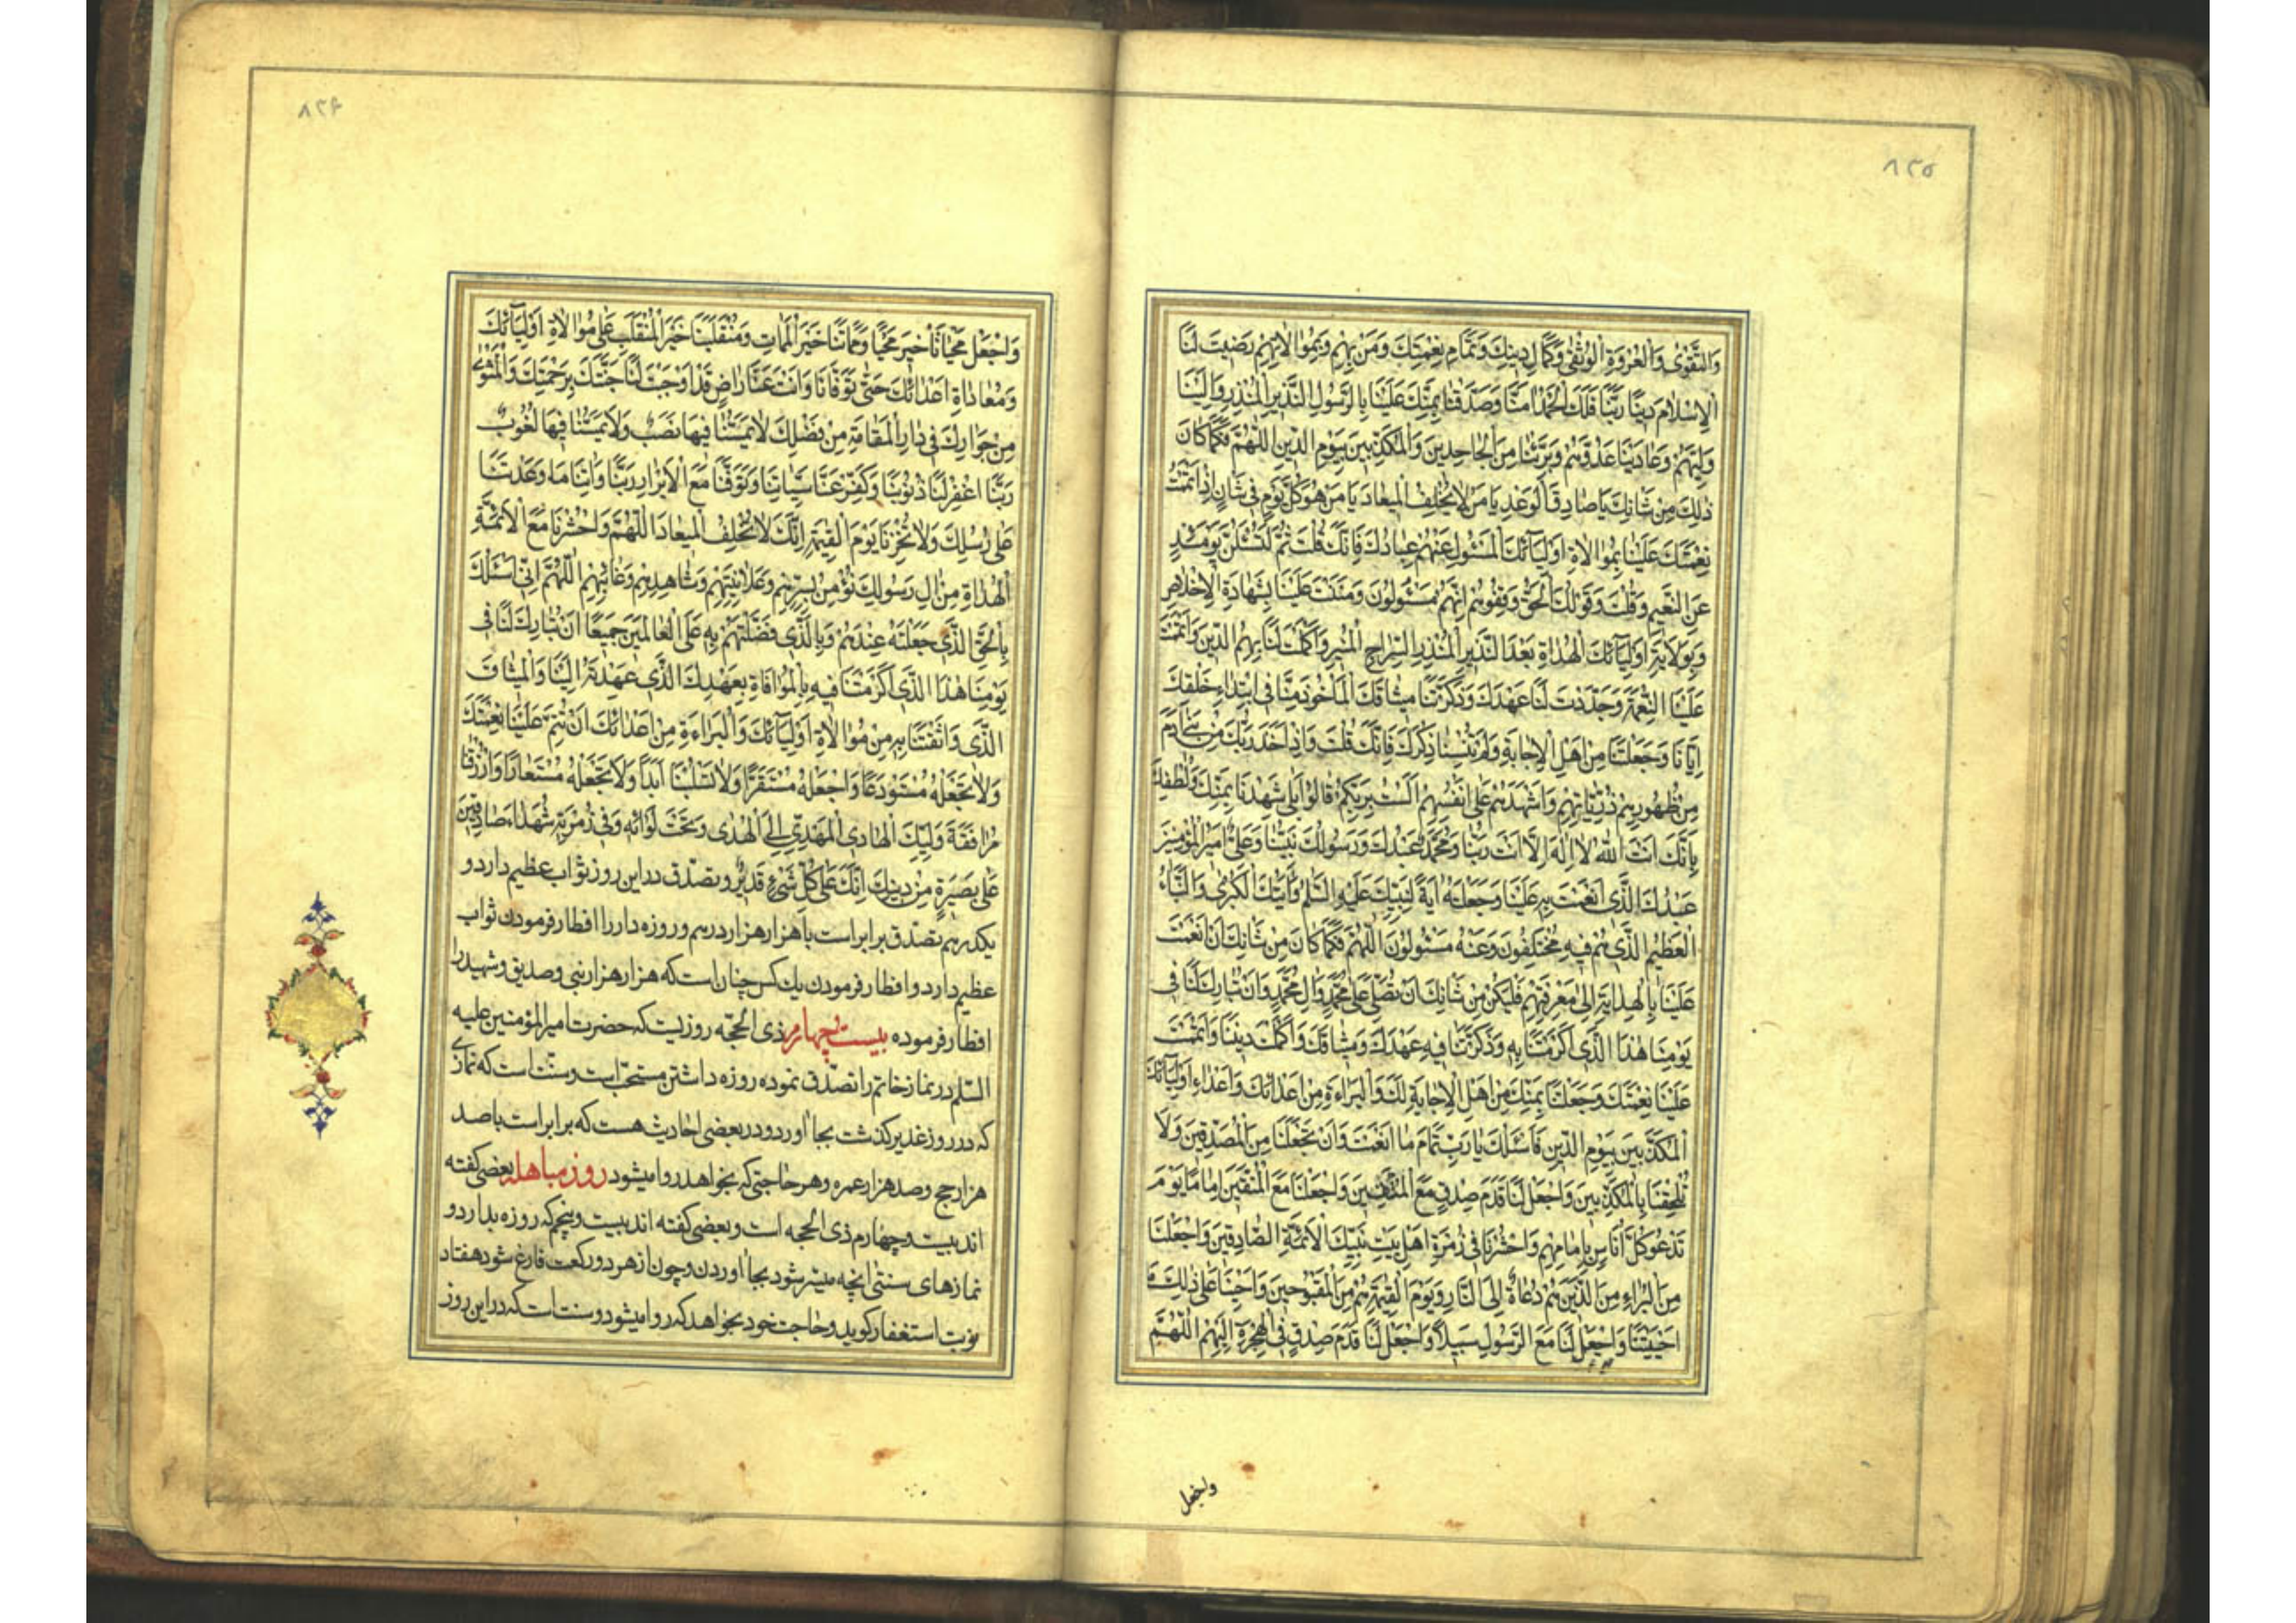 ۸۳۵
وَالتَّقْوٰى وَالْعُرْوَةِ الْوُثْقٰى وَكَمَالِ دِينِكَ وَتَمَامِ نِعْمَتِكَ وَمَنْ بِهِمْ وَبِمُوالاتِهِمْ رَضِيتَ لَنَا
الْاِسْلامَ دِينًا رَبَّنَا فَلَكَ الْحَمْدُ امَنَّا وَصَدَّقْنَا بِمَنِّكَ عَلَيْنَا بِالرَّسُولِ النَّذِيرِ الْمُنْذِرِ وَالَيْنَا
وَلِيَّهُمْ وَعَادَيْنَا عَدُوَّهُمْ وَبَرِئْنَا مِنَ الْجَاحِدِينَ وَالْمُكَذِّبِينَ بِيَوْمِ الدِّينِ اللّٰهُمَّ فَكَمَا كَانَ
ذٰلِكَ مِنْ شَانِكَ يَا صَادِقَ الْوَعْدِ يَا مَنْ لَا يُخْلِفُ الْمِيعَادَ يَا مَنْ هُوَ كُلَّ يَوْمٍ فِي شَانٍ اِذْ اَتْمَمْتَ
نِعْمَتَكَ عَلَيْنَا بِمُوالاةِ اَوْلِيَآئِكَ الْمَسْئُولِ عَنْهُمْ عِبَادُكَ فَاِنَّكَ قُلْتَ ثُمَّ لَتُسْئَلُنَّ يَوْمَئِذٍ
عَنِ النَّعِيمِ وَقُلْتَ وَقَوْلُكَ الْحَقُّ وَقِفُوهُمْ اِنَّهُمْ مَسْئُولُونَ وَمَنَنْتَ عَلَيْنَا بِشَهَادَةِ الْاِخْلاصِ
وَبِوَلايَةِ اَوْلِيَآئِكَ الْهُدَاةِ بَعْدَ النَّذِيرِ الْمُنْذِرِ السِّرَاجِ الْمُنِيرِ وَاَكْمَلْتَ لَنَا بِهِمُ الدِّينَ وَاَتْمَمْتَ
عَلَيْنَا النِّعْمَةَ وَجَدَّدْتَ لَنَا عَهْدَكَ وَذَكَّرْتَنَا مِيثَاقَكَ الْمَاْخُوذَ مِنَّا فِي ابْتِدَاءِ خَلْقِكَ
اِيَّانَا وَجَعَلْتَنَا مِنْ اَهْلِ الْاِجَابَةِ وَلَمْ تُنْسِنَا ذِكْرَكَ فَاِنَّكَ قُلْتَ وَاِذْ اَخَذَ رَبُّكَ مِنْ بَنِي ادَمَ
مِنْ ظُهُورِهِمْ ذُرِّيَّاتِهِمْ وَاَشْهَدَهُمْ عَلٰى اَنْفُسِهِمْ اَلَسْتُ بِرَبِّكُمْ قَالُوا بَلٰى شَهِدْنَا بِمَنِّكَ وَلُطْفِكَ
بِاَنَّكَ اَنْتَ اللّٰهُ لَا اِلٰهَ اِلَّا اَنْتَ رَبُّنَا وَمُحَمَّدٌ عَبْدُكَ وَرَسُولُكَ نَبِيُّنَا وَعَلِيٌّ اَمِيرُ الْمُؤْمِنِينَ
عَبْدُكَ الَّذِي اَنْعَمْتَ بِهِ عَلَيْنَا وَجَعَلْتَهُ ايَةً لِنَبِيِّكَ عَلَيْهِ السَّلٰمُ وَايَتَكَ الْكُبْرٰى وَالنَّبَاءَ
الْعَظِيمَ الَّذِي هُمْ فِيهِ مُخْتَلِفُونَ وَعَنْهُ مَسْئُولُونَ اَللّٰهُمَّ فَكَمَا كَانَ مِنْ شَانِكَ اَنْ اَنْعَمْتَ
عَلَيْنَا بِالْهِدَايَةِ اِلٰى مَعْرِفَتِهِمْ فَلْيَكُنْ مِنْ شَانِكَ اَنْ تُصَلِّيَ عَلٰى مُحَمَّدٍ وَالِ مُحَمَّدٍ وَاَنْ تُبَارِكَ لَنَا فِي
يَوْمِنَا هٰذَا الَّذِي اَكْرَمْتَنَا بِهِ وَذَكَّرْتَنَا فِيهِ عَهْدَكَ وَمِيثَاقَكَ وَاَكْمَلْتَ دِينَنَا وَاَتْمَمْتَ
عَلَيْنَا نِعْمَتَكَ وَجَعَلْتَنَا بِمَنِّكَ مِنْ اَهْلِ الْاِجَابَةِ لَكَ وَالْبَرَاءَةِ مِنْ اَعْدَائِكَ وَاَعْدَاءِ اَوْلِيَآئِكَ
الْمُكَذِّبِينَ بِيَوْمِ الدِّينِ فَاَسْئَلُكَ يَا رَبِّ تَمَامَ مَا اَنْعَمْتَ وَاَنْ تَجْعَلَنَا مِنَ الْمُصَدِّقِينَ وَلَا
تُلْحِقْنَا بِالْمُكَذِّبِينَ وَاجْعَلْ لَنَا قَدَمَ صِدْقٍ مَعَ الْمُتَّقِينَ وَاجْعَلْنَا مَعَ الْمُتَّقِينَ اِمَامًا يَوْمَ
تَدْعُو كُلَّ اُنَاسٍ بِاِمَامِهِمْ وَاحْشُرْنَا فِي زُمْرَةِ اَهْلِ بَيْتِ نَبِيِّكَ الْاَئِمَّةِ الصَّادِقِينَ وَاجْعَلْنَا
مِنَ الْبُرَاءِ مِنَ الَّذِينَ هُمْ دُعَاةٌ اِلَى النَّارِ وَيَوْمَ الْقِيٰمَةِ هُمْ مِنَ الْمَقْبُوحِينَ وَاَحْيِنَا عَلٰى ذٰلِكَ مَا
اَحْيَيْتَنَا وَاجْعَلْ لَنَا مَعَ الرَّسُولِ سَبِيلًا وَاجْعَلْ لَنَا قَدَمَ صِدْقٍ فِي الْهِجْرَةِ اِلَيْهِمْ اللّٰهُمَّ
واجعل
۸۳۶
وَاجْعَلْ مَحْيَانَا خَيْرَ مَحْيًا وَمَمَاتَنَا خَيْرَ الْمَمَاتِ وَمُنْقَلَبَنَا خَيْرَ الْمُنْقَلَبِ عَلٰى مُوالاةِ اَوْلِيَآئِكَ
وَمُعَادَاةِ اَعْدَائِكَ حَتّٰى تَوَفَّانَا وَاَنْتَ عَنَّا رَاضٍ قَدْ اَوْجَبْتَ لَنَا جَنَّتَكَ بِرَحْمَتِكَ وَالْمَثْوٰى
مِنْ جَوَارِكَ فِي دَارِ الْمُقَامَةِ مِنْ فَضْلِكَ لَا يَمَسُّنَا فِيهَا نَصَبٌ وَلَا يَمَسُّنَا فِيهَا لُغُوبٌ
رَبَّنَا اغْفِرْ لَنَا ذُنُوبَنَا وَكَفِّرْ عَنَّا سَيِّاتِنَا وَتَوَفَّنَا مَعَ الْاَبْرَارِ رَبَّنَا وَاتِنَا مَا وَعَدْتَنَا
عَلٰى رُسُلِكَ وَلَا تُخْزِنَا يَوْمَ الْقِيٰمَةِ اِنَّكَ لَا تُخْلِفُ الْمِيعَادَ اللّٰهُمَّ وَاحْشُرْنَا مَعَ الْاَئِمَّةِ
الْهُدَاةِ مِنْ الِ رَسُولِكَ نُؤْمِنُ بِسِرِّهِمْ وَعَلانِيَتِهِمْ وَشَاهِدِهِمْ وَغَائِبِهِمْ اَللّٰهُمَّ اِنِّي اَسْئَلُكَ
بِالْحَقِّ الَّذِي جَعَلْتَهُ عِنْدَهُمْ وَبِالَّذِي فَضَّلْتَهُمْ بِهِ عَلَى الْعَالَمِينَ جَمِيعًا اَنْ تُبَارِكَ لَنَا فِي
يَوْمِنَا هٰذَا الَّذِي اَكْرَمْتَنَا فِيهِ بِالْمُوَافَاةِ بِعَهْدِكَ الَّذِي عَهِدْتَهُ اِلَيْنَا وَالْمِيثَاقِ
الَّذِي وَاثَقْتَنَا بِهِ مِنْ مُوالاةِ اَوْلِيَآئِكَ وَالْبَرَاءَةِ مِنْ اَعْدَائِكَ اَنْ تُتِمَّ عَلَيْنَا نِعْمَتَكَ
وَلَا تَجْعَلْهُ مُسْتَوْدَعًا وَاجْعَلْهُ مُسْتَقَرًّا وَلَا تَسْلُبْنَا اَبَدًا وَلَا تَجْعَلْهُ مُسْتَعَارًا وَارْزُقْنَا
مُرَافَقَةَ وَلِيِّكَ الْهَادِي الْمَهْدِيِّ اِلَى الْهُدٰى وَتَحْتَ لِوَائِهِ وَفِي زُمْرَتِهِ شُهَدَاءَ صَادِقِينَ
عَلٰى بَصِيرَةٍ مِنْ دِينِكَ اِنَّكَ عَلٰى كُلِّ شَيْءٍ قَدِيرٌ و تصدّق در این روز ثواب عظیم دارد و
یکدرهم تصدّق برابر است با هزار هزار درهم و روزه دار را افطار فرمودن ثواب
عظیم دارد و افطار فرمودن یك كس چنان است که هزار هزار نبی و صدیق و شهید را
افطار فرموده بیست چهارم ذی الحجّه روزیست که حضرت امیر المؤمنین علیه
السّلم در نماز خاتم را تصدّق نموده روزه داشتن مستحبّ است و سنّت است که نمازی
که در روز غدیر گذشت بجا آورد و در بعضی احادیث هست که برابر است با صد
هزار حج و صد هزار عمره و هر حاجتی که بخواهد روا میشود روز مباهله بعضی گفته
اند بیست و چهارم ذی الحجه است و بعضی گفته اند بیست و پنجم که روزه بدارد و
نمازهای سنتی انچه میسّر شود بجا آوردن و چون از هر دو رکعت فارغ شود هفتاد
نوبت استغفار گوید و حاجت خود بخواهد که روا میشود و سنت است که در این روز